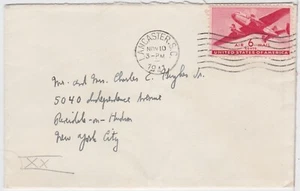 LANCASTER, S.C.
NOV 10
3-PM
AIR 6 MAIL
UNITED STATES OF AMERICA
Mr. and Mrs. Charles E. Hughes Jr.
5040 Independence Avenue
Riverdale-on-Hudson
New York City
XX